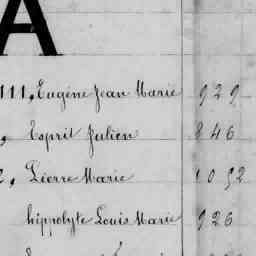 A
111, Eugène Jean Marie 929
, Esprit Julien 846
2, Pierre Marie 1052
hippolyte Louis Marie 926